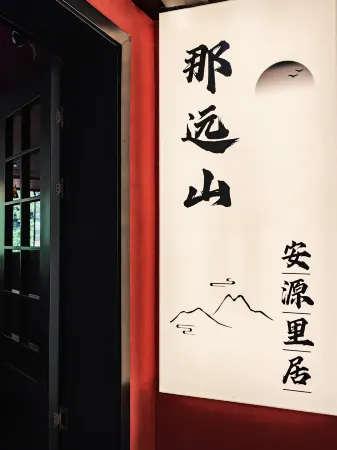 那远山
安源里居